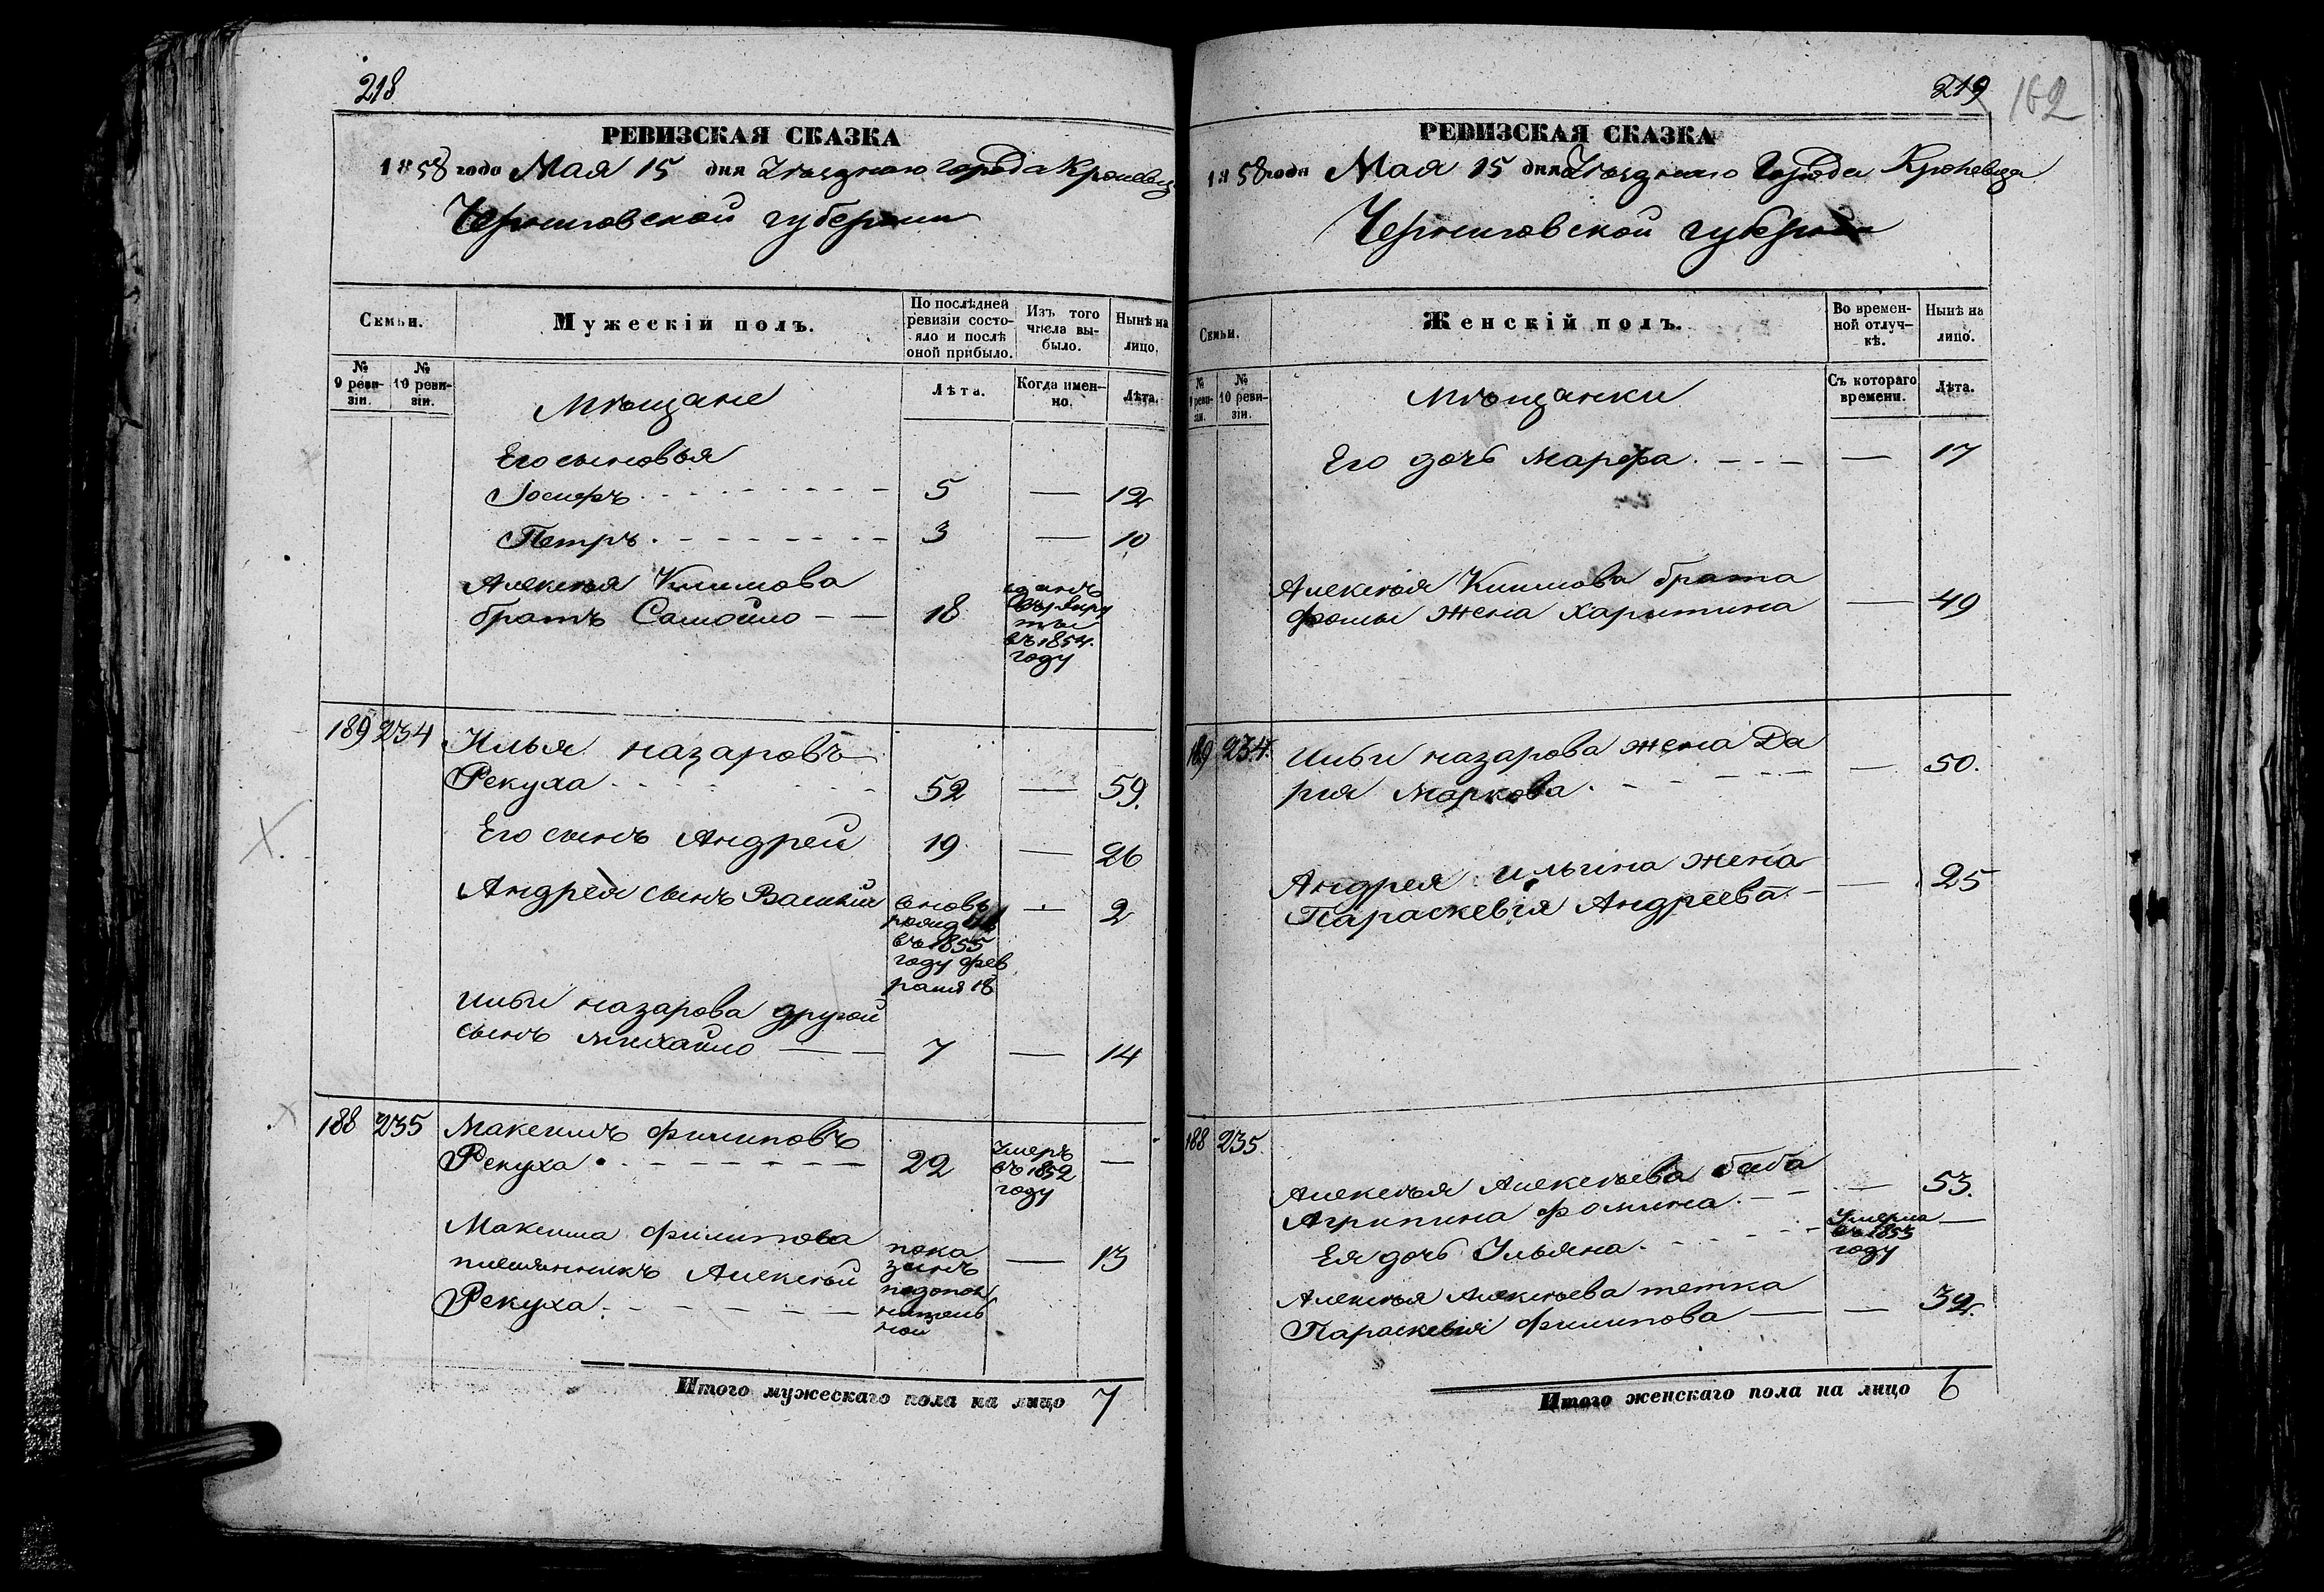 218
РЕВИЗСКАЯ СКАЗКА
1858 года Мая 15 дня Уѣзднаго города Кролевца
Черниговской губернии
Семьи.
Мужескій полъ.
По послѣдней ревизіи состояло и послѣ оной прибыло.
Изъ того числа выбыло.
Нынѣ на лицо.
№ 9 ревизіи.
№ 10 ревизіи.
Мѣщане
Лѣта.
Когда именно.
Лѣта.
Его сыновья
Іосифъ 5 — 12
Петръ 3 — 10
Алексѣя Климова
братъ Самойло — 18
въ рекруты
въ 1854.
году
189 234 Илья Назаровъ
Рекуха 52 — 59.
Его сынъ Андрей 19 — 26
Андрея сынъ Василий — 2
вновь
рожденъ
въ 1855
году фев
раля 18
Ильи Назарова другой
сынъ Михайло — 7 — 14
188 235 Максимъ Филиповъ
Рекуха 22 —
Умеръ
въ 1852
году
Максима Филипова
племянникъ Алексѣй — 13
Рекуха
пока
занъ
подопол
нитель
ной
Итого мужескаго пола на лицо 7
219
162
РЕВИЗСКАЯ СКАЗКА
1858 года Мая 15 дня Уѣзднаго Города Кролевца
Черниговской губернии
Семьи.
Женскій полъ.
Во временной отлучкѣ.
Нынѣ на лицо.
№ 9 ревизіи.
№ 10 ревизіи.
Мѣщанки
Съ котораго времени.
Лѣта.
Его дочь Марфа — 17
Алексѣя Климова брата
Фомы жена Харитина — 49
189 234. Ильи Назарова жена Да
рия Маркова — 50.
Андрея Ильина жена
Параскевія Андреева — 25
188 235.
Алексѣя Алексѣева баба
Агрипина Фомина — 53.
Ея дочь Ульяна —
Умерла
въ 1855
году
Алексѣя Алексѣева тетка
Параскевія Филипова — 32.
Итого женскаго пола на лицо 6